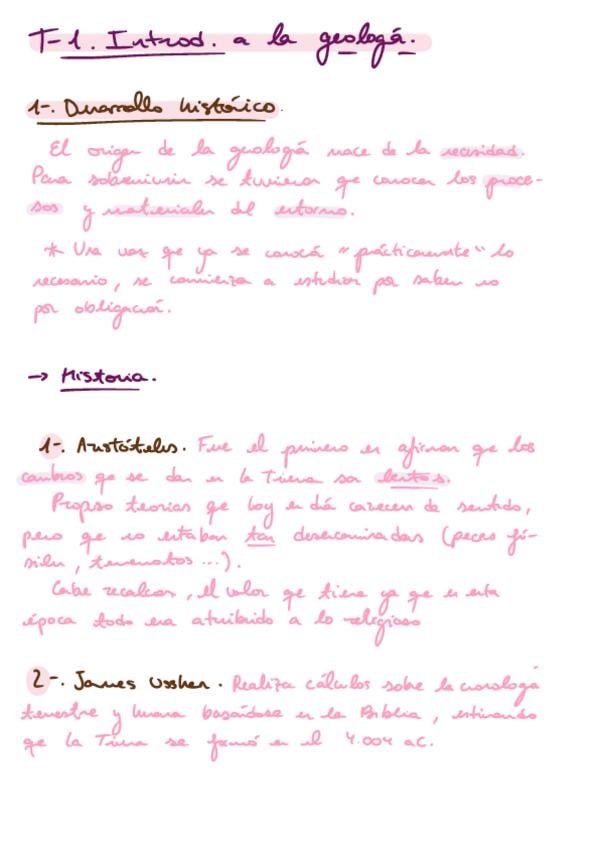 T-1. Introd. a la geología.
1-. Desarrollo histórico.
El origen de la geología nace de la necesidad.
Para sobrevivir se tuvieron qe conocer los proce-
sos y materiales del entorno.
* Una vez qe ya se conocía "prácticamente" lo
necesario, se comienza a estudiar por saber no
por obligación.
→ Historia.
1-. Aristóteles. Fue el primero en afirmar qe los
cambios qe se dan en la Tierra son lentos.
Propuso teorías qe hoy en día carecen de sentido,
pero qe no estaban tan desencaminadas (peces fó-
siles, terremotos ...).
Cabe recalcar, el valor qe tiene ya qe en esta
época todo era atribuido a lo religioso
2-. James Ussher. Realiza cálculos sobre la cronología
terrestre y humana basándose en la Biblia, estimando
qe la Tierra se formó en el 4.004 a.C.